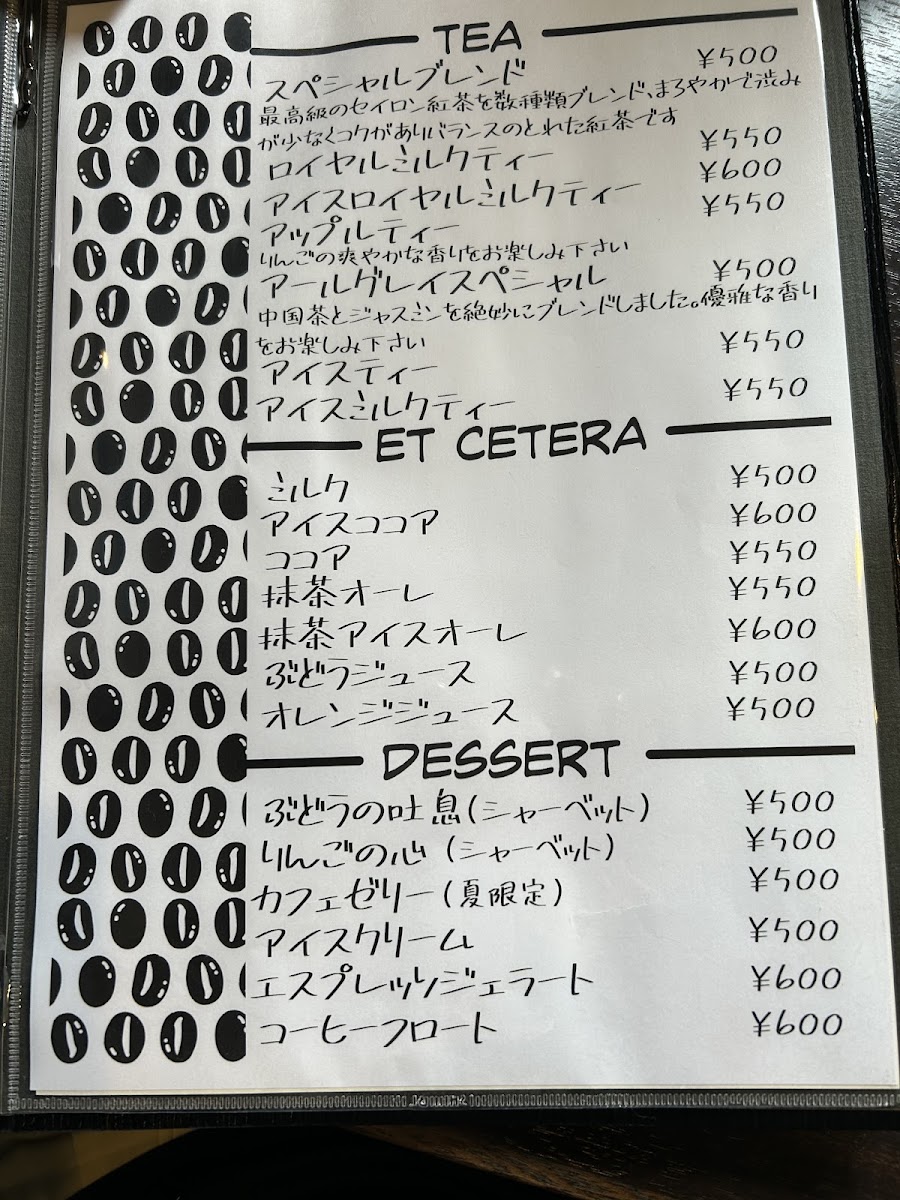 TEA
スペシャルブレンド ¥500
最高級のセイロン紅茶を数種類ブレンド、まろやかで渋み
が少なくコクがありバランスのとれた紅茶です
ロイヤルミルクティー ¥550
アイスロイヤルミルクティー ¥600
アップルティー ¥550
りんごの爽やかな香りをお楽しみ下さい
アールグレイスペシャル ¥500
中国茶とジャスミンを絶妙にブレンドしました。優雅な香り
をお楽しみ下さい
アイスティー ¥550
アイスミルクティー ¥550
ET CETERA
ミルク ¥500
アイスココア ¥600
ココア ¥550
抹茶オーレ ¥550
抹茶アイスオーレ ¥600
ぶどうジュース ¥500
オレンジジュース ¥500
DESSERT
ぶどうの吐息(シャーベット) ¥500
りんごの心(シャーベット) ¥500
カフェゼリー(夏限定) ¥600
アイスクリーム ¥500
エスプレッソジェラート ¥600
コーヒーフロート ¥600